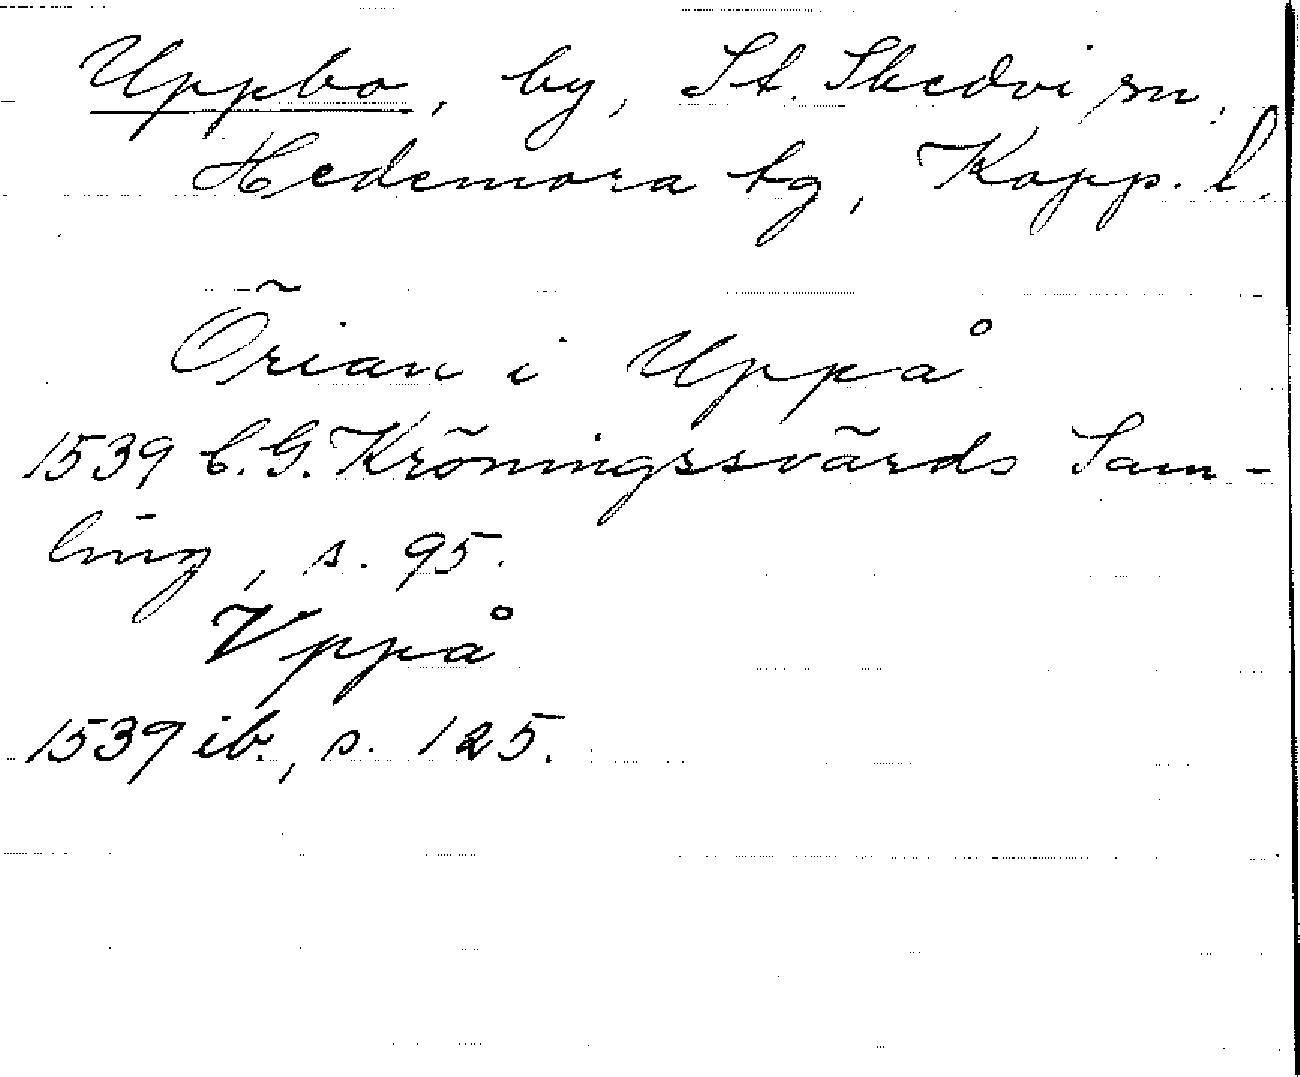 Uppbo, by, St. Skedvi sn,
Hedemora tg, Kopp. l.
Örian i Uppå
1539 C.G. Kröningssvärds Sam-
ling, s. 95.
Vppå
1539 ib., s. 125.